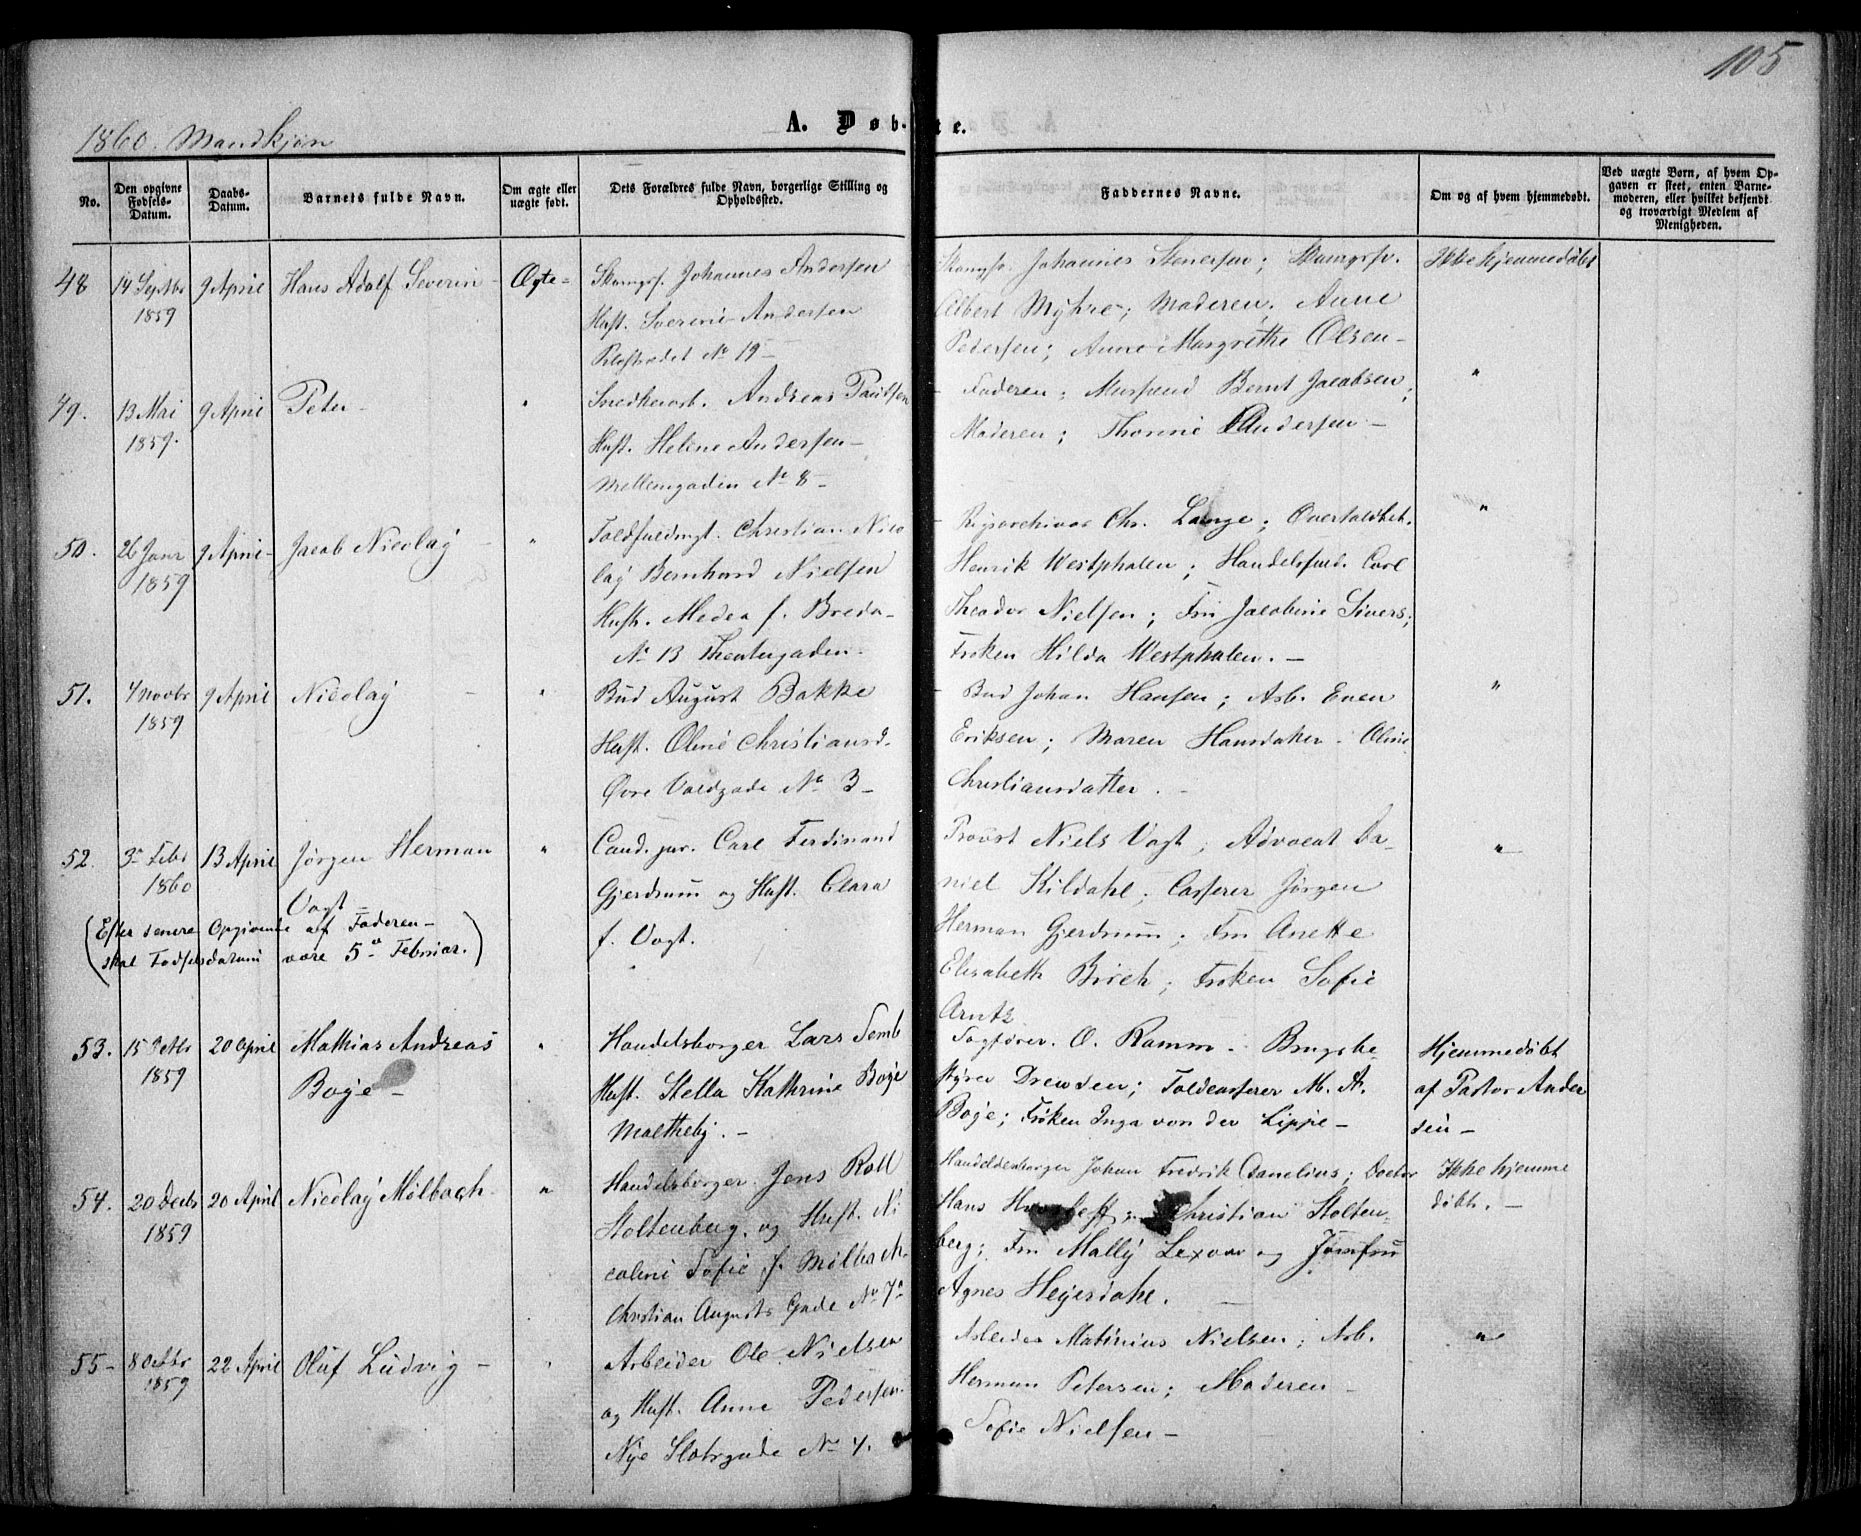 105
1860. Mandkjøn
A. Døbte.
No.
Den opgivne Fødsels-Datum.
Daabs-Datum.
Barnets fulde Navn.
Om ægte eller uægte født.
Dets Forældres fulde Navn, borgerlige Stilling og Opholdssted.
Faddernes Navne.
Om og af hvem hjemmedøbt.
Ved uægte Børn, af hvem Opgaven er skeet, enten Barnemoderen, eller hvilket bekjendt og troværdigt Medlem af Menigheden.
48
14 Septbr
1859
9 April
Hans Adolf Severin -
Ægte -
Skomgrs. Johannes Andersen
Hust. Severine Andersen
No 19 -
Johannes Stenersen;
Albert Myhre; Moderen; Anne
Pedersen; Anne Margrethe Olsen -
Ikke hjemmedøbt
49.
13 Mai
1859.
9 April
Peter -
"
Snedkerarb. Andreas Paulsen
Hust. Helene Andersen -
Mellemgaden No 8 -
Faderen; Murspend Bernt Jacobsen;
Moderen; Thonine Andersen -
"
50.
26 Janr
1859
9 April -
Jacob Nicolay -
"
Toldfuldmgt. Christian Nico
lay Bernhard Nielsen
Hust. Medea f. Breda -
No 13 Theatergaden -
- Rigsarchivar Chr. Lange; Overtoldbet.
Henrik Westphalen; Handelsfuld. Carl
Theodor Nielsen; Fru Jacobine Sivers;
Frøken Hilda Westphalen. -
"
51.
4 Novbr
1859
9 April
Nicolay -
"
Bud August Bakke
Hust. Oline Christiansd.
Øvre Voldgade No 3 -
- Bud Johan Hansen; Arb. Even
Eriksen; Maren Hansdatter - Oline
Christiansdatter. -
"
52
3e Febr
1860
13 April
Jørgen Herman
Vogt -
"
Cand. jur. Carl Ferdinand
Gjerdrum og Hust. Clara
f. Vogt.
Provst Niels Vogt; Advocat Da-
niel Kildahl; Casserer Jørgen
Herman Gjerdrum; Fru Anette
Elisabeth Birch; Frøken Sofie
Arntz
"
(Efter senere Opgivende af Faderen -
skal Fødselsdatum være 5e Februar.)
53.
15 Octbr
1859
20 April
Mathias Andreas
Boje -
"
Handelsborger Lars Semb
Hust. Stella Kathrine Boje
Maltheby. -
Sagfører. O. Ramm - Brugsbe-
styrer Drewsen; Toldcasserer M. A.
Boje; Frøken Inga von der Lippe -
Hjemmedøbt
af Pastor Ander
sen -
54.
20 Decbr
1859
20 April
Nicolay Mølbach.
"
Handelsborger Jens Roll
Stoltenberg. og Hust. Ni
coline Sofie f. Mølbach
Christian Augusts Gade No 7a
Handelsborger Johan Fredrik Danelius; Doctor
Hans Christian Stolten-
berg; Fru Mally Lexow og Jomfru
Agnes Heyerdahl. -
Ikke hjemme
døbt. -
55 -
8 Octbr
1859
22 April
Oluf Ludvig -
"
Arbeider Ole Nielsen
og Hust. Anne Pedersen.
Nye Slotsgade No 4.
Arbeider Mathinius Nielsen; Arb.
Herman Petersen; Moderen -
Sofie Nielsen -
"